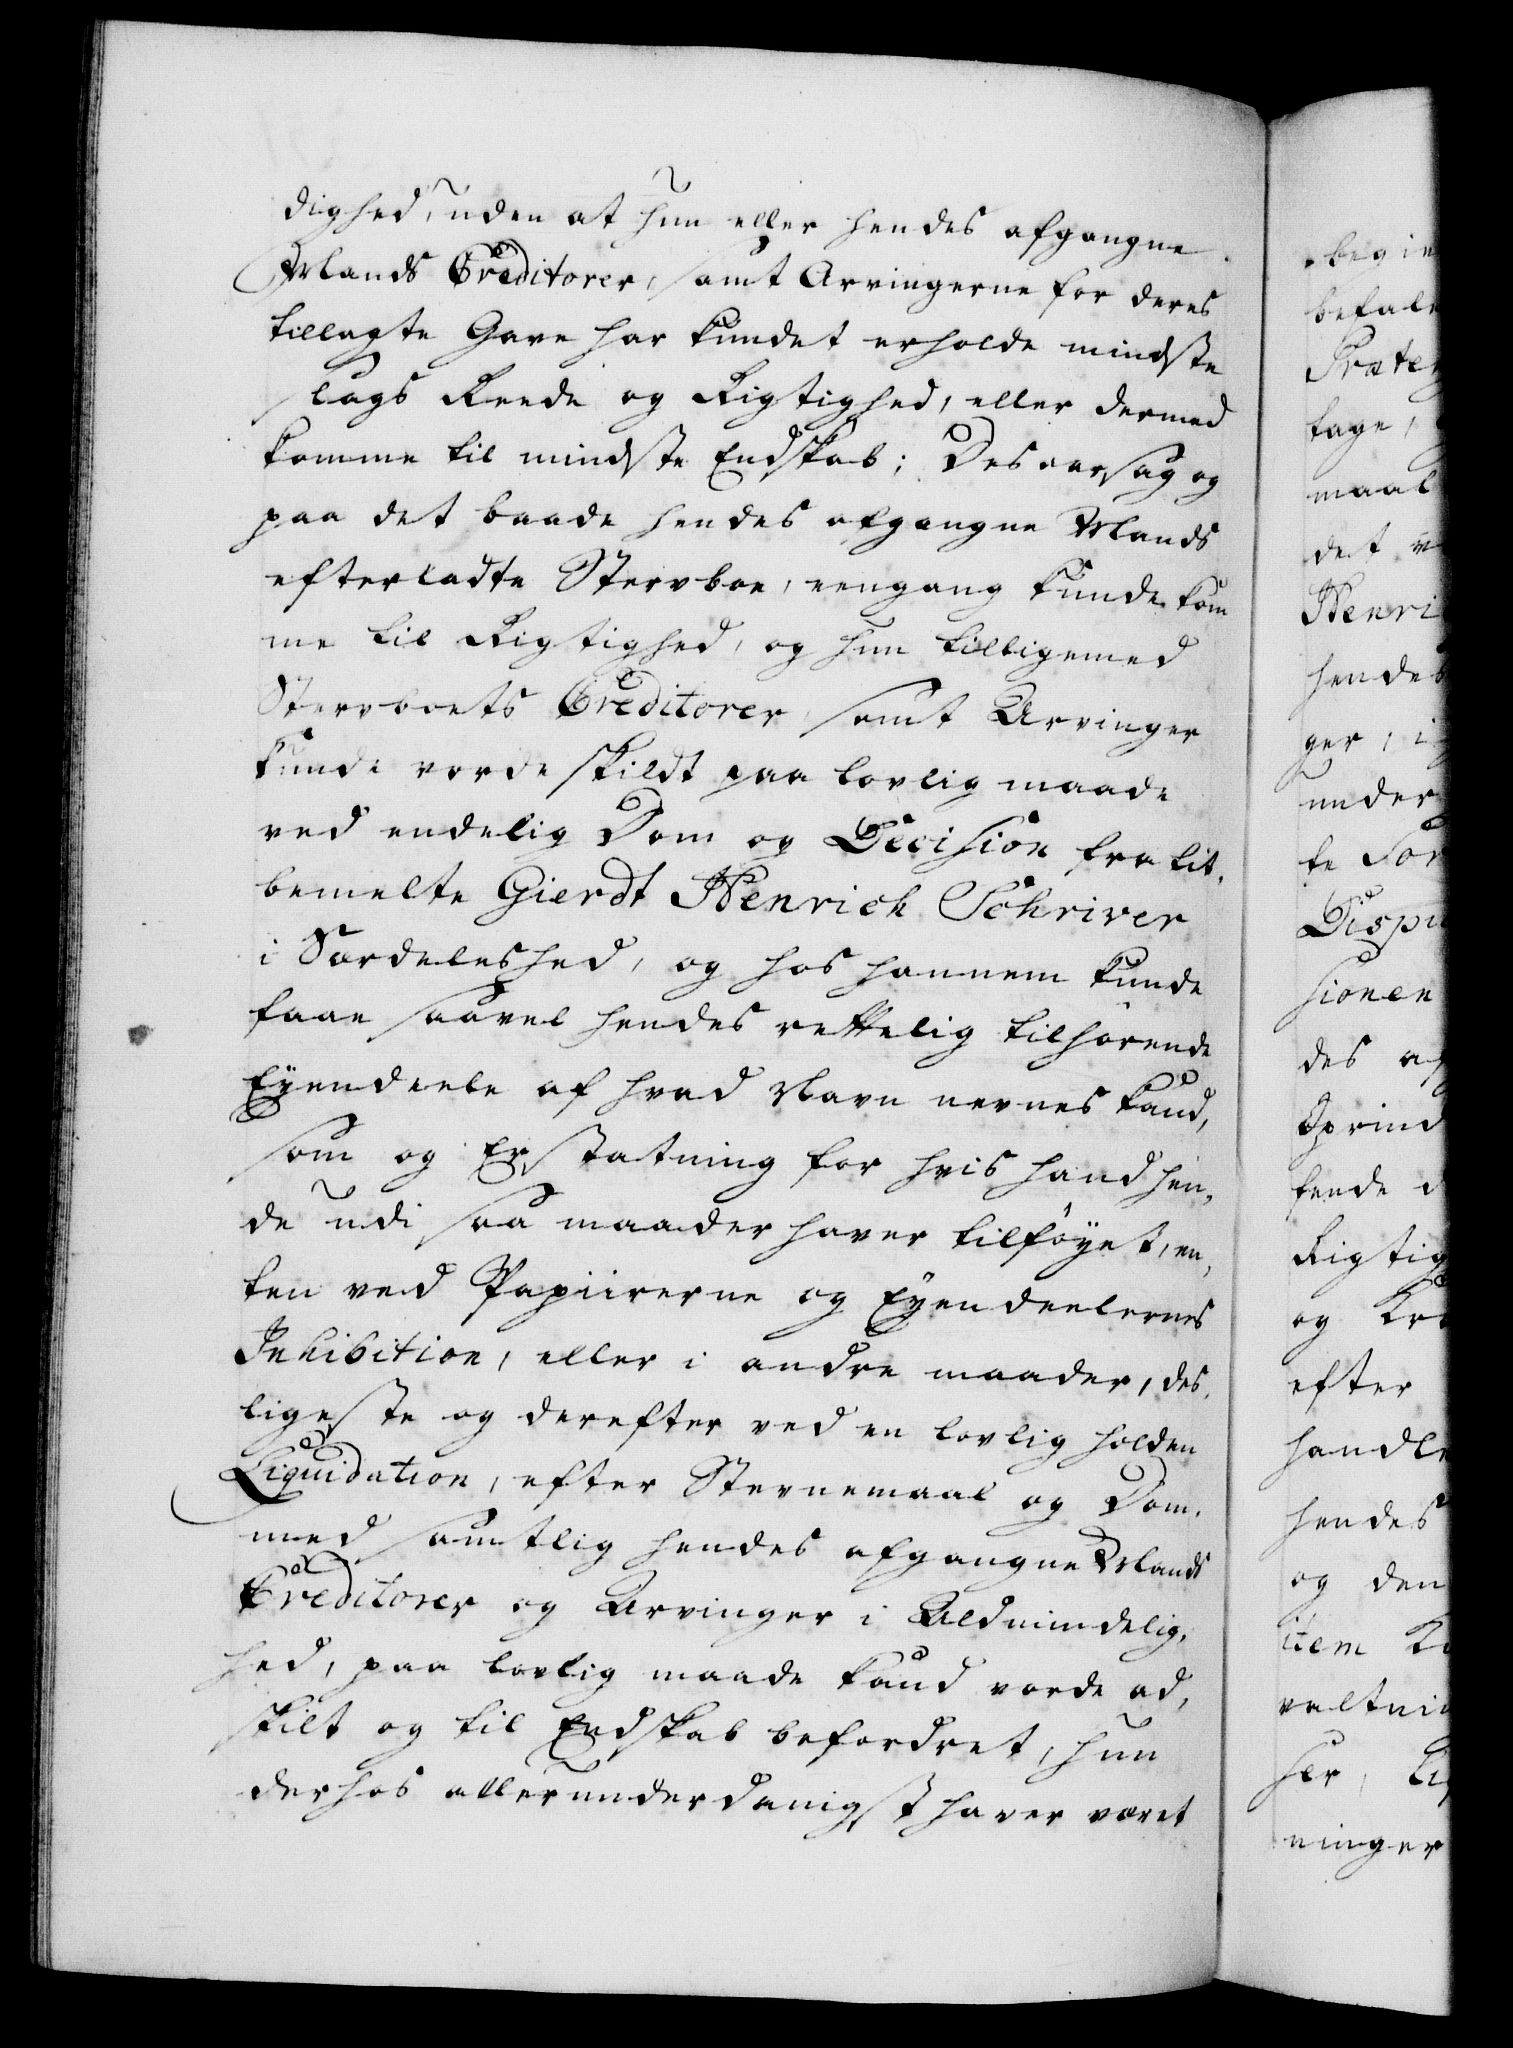 dighed, uden at hun eller hendes afgangne
Mands Creditorer, samt Arvingerne for deres
tillagte Gave har kundet erholde mindste
slags Reede og Rigtighed, eller dermed
komme til mindste Endskab; Desaarsag og
paa det baade hendes afgangne Mands
efterladte Stervboe, eengang kunde kom
me til Rigtighed, og hun tilligemed
Stervboets Creditorer, samt Arvinger
kunde vorde skildt paa lovlig maade
ved endelig Dom og Decision fra bit.
bemelte Gierdt Henrich Schriver
i Særdeleshed, og hos hannem kunde
faae saavel hendes rettelig tilhørende
Eyendeele af hvad Navn nevnes kand,
som og Erstatning for hvis hand hen,
de udi saa maader haver tilføyet, en,
ten ved Papiirerne og Eyendeelernes
Inhibition, eller i andre maader, des,
ligeste og derefter ved en lovlig holden
Liquidation, efter Stevnemaal og Dom,
med samtlig hendes afgangne Mands
Creditorer og Arvinger i Aldmindelig,
hed, paa lovlig maade kand vorde ad,
skilt og til Endskab befordret, hun
derhos allerunderdanigst haver været
begie
befale
Præten
tage,
maal
det
Henri
hendes
ger, i
under
te
Dispu
sionen
des af
Oprind
Rigtig
og
efter
handle
hendes
og den
item
valtnin
ninger